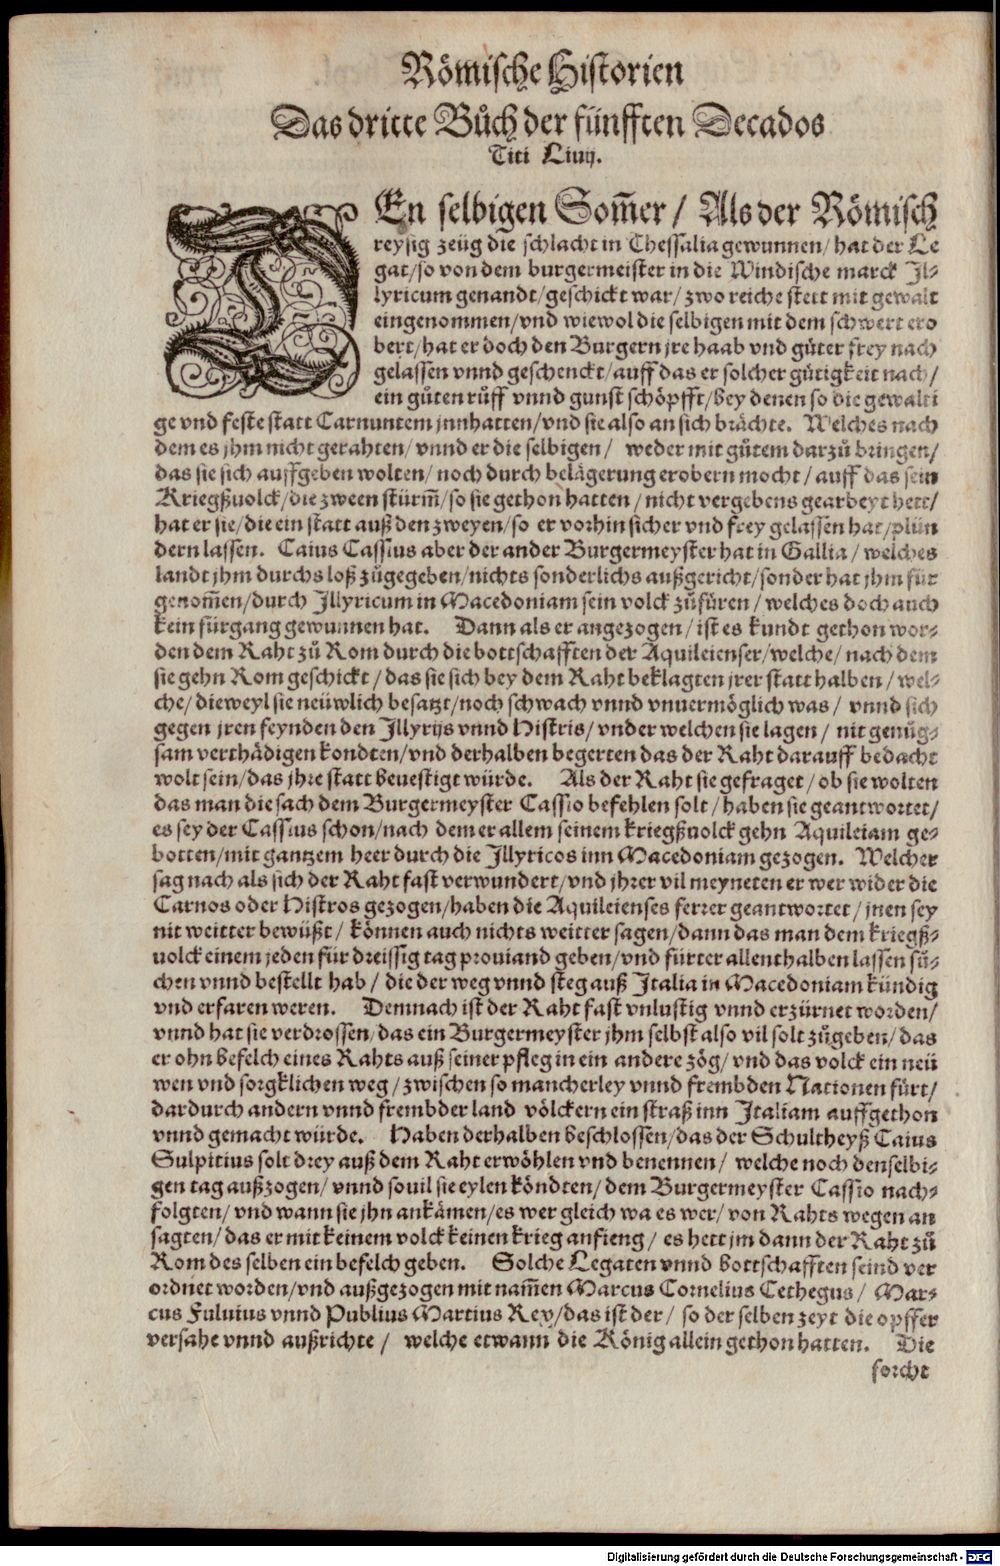 Römische Historien
Das dritte Bůch der fünfften Decados
Titi Liuij.
DEn selbigen Som̃er / Als der Römisch
reysig zeüg die schlacht in Thessalia gewunnen / hat der Le
gat / so von dem burgermeister in die Windische marck Jl⸗
lyricum genandt / geschickt war / zwo reiche stett mit gewalt
eingenommen / vnd wiewol die selbigen mit dem schwert ero
bert / hat er doch den Burgern jre haab vnd güter frey nach
gelassen vnnd geschenckt / auff das er solcher gütigkeit nach /
ein gůten růff vnnd gunst schöpfft / bey denen so die gewalti
ge vnd feste statt Carnuntem jnnhatten / vnd sie also an sich brächte. Welches nach
dem es jhm nicht gerahten / vnnd er die selbigen / weder mit gůtem darzů bringen /
das sie sich auffgeben wolten / noch durch belägerung erobern mocht / auff das sein
Kriegßuolck / die zween stürm̃ / so sie gethon hatten / nicht vergebens gearbeyt hett /
hat er sie / die ein statt auß den zweyen / so er vorhin sicher vnd frey gelassen hat / plün
dern lassen. Caius Cassius aber der ander Burgermeyster hat in Gallia / welches
landt jhm durchs loß zůgegeben / nichts sonderlichs außgericht / sonder hat jhm für
genom̃en / durch Jllyricum in Macedoniam sein volck zůfüren / welches doch auch
kein fürgang gewunnen hat. Dann als er angezogen / ist es kundt gethon wor⸗
den dem Raht zů Rom durch die bottschafften der Aquileienser / welche / nach dem
sie gehn Rom geschickt / das sie sich bey dem Raht beklagten jrer statt halben / wel⸗
che / dieweyl sie neüwlich besatzt / noch schwach vnnd vnuermöglich was / vnnd sich
gegen jren feynden den Jllyrijs vnnd Histris / vnder welchen sie lagen / nit genůg⸗
sam verthädigen kondten / vnd derhalben begerten das der Raht darauff bedacht
wolt sein / das jhre statt beuestigt würde. Als der Raht sie gefraget / ob sie wolten
das man die sach dem Burgermeyster Cassio befehlen solt / haben sie geantwortet /
es sey der Cassius schon / nach dem er allem seinem kriegßuolck gehn Aquileiam ge⸗
botten / mit gantzem heer durch die Jllyricos inn Macedoniam gezogen. Welcher
sag nach als sich der Raht fast verwundert / vnd jhrer vil meyneten er wer wider die
Carnos oder Histros gezogen / haben die Aquileienses ferrer geantwortet / jnen sey
nit weitter bewüßt / können auch nichts weitter sagen / dann das man dem kriegß⸗
uolck einem jeden für dreissig tag prouiand geben / vnd fürter allenthalben lassen sů⸗
chen vnnd bestellt hab / die der weg vnnd steg auß Jtalia in Macedoniam kündig
vnd erfaren weren. Demnach ist der Raht fast vnlustig vnnd erzürnet worden /
vnnd hat sie verdrossen / das ein Burgermeyster jhm selbst also vil solt zůgeben / das
er ohn befelch eines Rahts auß seiner pfleg in ein andere zög / vnd das volck ein neü
wen vnd sorgklichen weg / zwischen so mancherley vnnd frembden Nationen fürt /
dardurch andern vnnd frembder land völckern ein straß inn Jtaliam auffgethon
vnnd gemacht würde. Haben derhalben beschlossen / das der Schultheyß Caius
Sulpitius solt drey auß dem Raht erwöhlen vnd benennen / welche noch denselbi⸗
gen tag außzogen / vnnd souil sie eylen köndten / dem Burgermeyster Cassio nach⸗
folgten / vnd wann sie jhn ankämen / es wer gleich wa es wer / von Rahts wegen an
sagten / das er mit keinem volck keinen krieg anfieng / es hett jm dann der Raht zů
Rom des selben ein befelch geben. Solche Legaten vnnd bottschafften seind ver
ordnet worden / vnd außgezogen mit nam̃en Marcus Cornelius Cethegus / Mar⸗
cus Fuluius vnnd Publius Martius Rey / das ist der / so der selben zeyt die opffer
versahe vnnd außrichte / welche etwann die König allein gethon hatten. Die
forcht
Digitalisierung gefördert durch die Deutsche Forschungsgemeinschaft - DFG